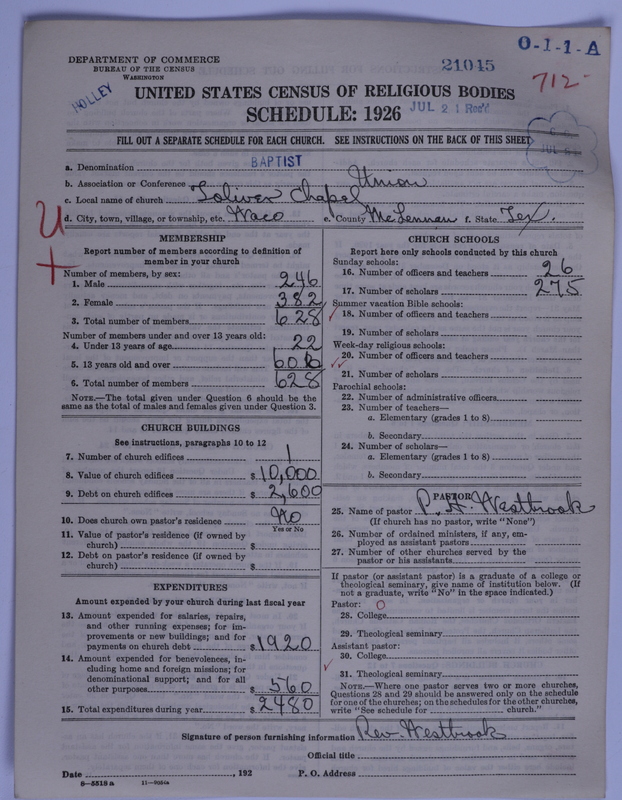 DEPARTMENT OF COMMERCE
BUREAU OF THE CENSUS
WASHINGTON
HOLLEY
21045
O-1-1-A
712-
UNITED STATES CENSUS OF RELIGIOUS BODIES
SCHEDULE: 1926
JUL 21 Rec'd
FILL OUT A SEPARATE SCHEDULE FOR EACH CHURCH. SEE INSTRUCTIONS ON THE BACK OF THIS SHEET
a. Denomination BAPTIST
b. Association or Conference Union
c. Local name of church Toliver Chapel
d. City, town, village, or township, etc. Waco e. County McLennan f. State Tex.
MEMBERSHIP
Report number of members according to definition of
member in your church
Number of members, by sex:
1. Male 246
2. Female 382
3. Total number of members 628
Number of members under and over 13 years old:
4. Under 13 years of age 22
5. 13 years old and over 606
6. Total number of members 628
NOTE.—The total given under Question 6 should be
same as the total of males and females given under Question 3.
CHURCH BUILDINGS
See instructions, paragraphs 10 to 12
7. Number of church edifices 1
8. Value of church edifices $ 10,000
9. Debt on church edifices $ 2,600
10. Does church own pastor's residence No
Yes or No
11. Value of pastor's residence (if owned by
church) $
12. Debt on pastor's residence (if owned by
church) $
EXPENDITURES
Amount expended by your church during last fiscal year
13. Amount expended for salaries, repairs,
and other running expenses; for im-
provements or new buildings; and for
payments on church debt $ 1920
14. Amount expended for benevolences, in-
cluding home and foreign missions; for
denominational support; and for all
other purposes $ 560
15. Total expenditures during year $ 2480
CHURCH SCHOOLS
Report here only schools conducted by this church
Sunday schools:
16. Number of officers and teachers 26
17. Number of scholars 275
Summer vacation Bible schools:
18. Number of officers and teachers
19. Number of scholars
Week-day religious schools:
20. Number of officers and teachers
21. Number of scholars
Parochial schools:
22. Number of administrative officers
23. Number of teachers—
a. Elementary (grades 1 to 8)
b. Secondary
24. Number of scholars—
a. Elementary (grades 1 to 8)
b. Secondary
PASTOR
25. Name of pastor P. H. Westbrook
(If church has no pastor, write "None")
26. Number of ordained ministers, if any, em-
ployed as assistant pastors
27. Number of other churches served by the
pastor or his assistants
If pastor (or assistant pastor) is a graduate of a college or
theological seminary, give name of institution below. (If
not a graduate, write "No" in the space indicated.)
Pastor: O
28. College
29. Theological seminary
Assistant pastor:
30. College
31. Theological seminary
NOTE.—Where one pastor serves two or more churches,
Questions 28 and 29 should be answered only on the schedule
for one of the churches; on the schedules for the other churches,
write "See schedule for church."
Signature of person furnishing information Rev. Westbrook
Official title
Date , 192 P. O. Address
8—5518 a 11—9034a